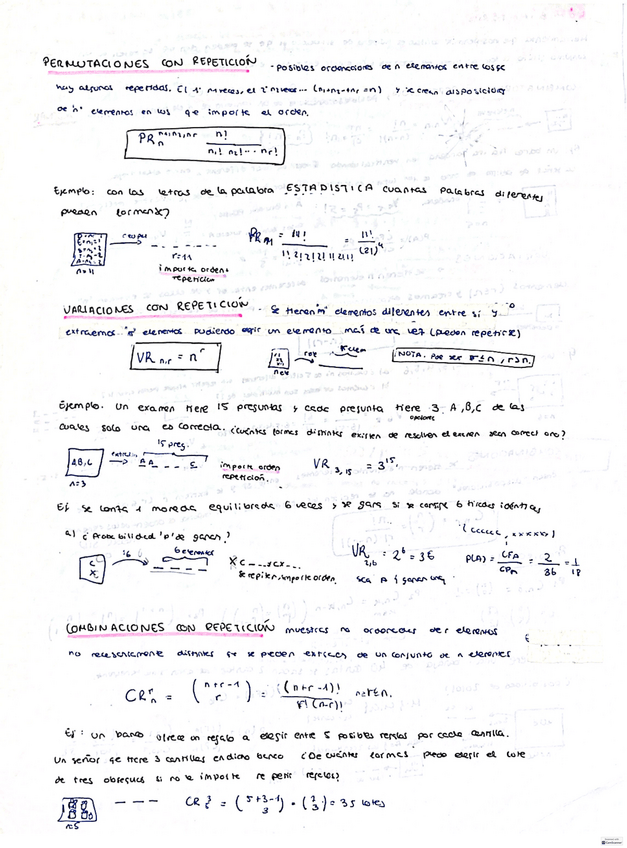 PERMUTACIONES CON REPETICIÓN - Posibles ordenaciones de n elementos entre los que
hay algunos repetidos. El 1º n₁ veces, el 2º n₂ veces ... (n₁+n₂+...+nᵣ = n) y se crean disposiciones
de 'n' elementos en los que importe el orden.
PRₙ n₁,n₂,nᵣ n! / n₁! n₂! ... nᵣ!
Ejemplo: con las letras de la palabra ESTADISTICA cuantas palabras diferentes
pueden formarse?
n=11 r=11
importa orden
repetición
PR₁₁ = 11! / 1! 2! 2! 2! 1! 2! 1! = 11! / (2!)⁴
VARIACIONES CON REPETICIÓN - Se tienen 'n' elementos diferentes entre sí y
extraemos 'r' elementos pudiendo elegir un elemento más de una vez (pueden repetirse)
VR n,r = nʳ
NOTA. Puede ser r≤n, r>n.
Ejemplo. Un examen tiene 15 preguntas y cada pregunta tiene 3 opciones A, B, C de las
cuales solo una es correcta. ¿Cuántas formas distintas existen de resolver el examen sean correct o no?
15 preg.
A,B,C A A _ _ _ C
n=3
importe orden
repetición.
VR 3,15 = 3¹⁵
Ej se lanza 1 moneda equilibrada 6 veces y se gana si se consigue 6 tiradas idénticas
a) ¿Probabilidad 'p' de ganar? {cccccc, xxxxxx}
C X 6 elementos
X C _ _ X C X
Se repiten, importe orden.
VR 2,6 = 2⁶ = 36 P(A) = CFA / CPA = 2 / 36 = 1 / 18
sea A {ganar}
COMBINACIONES CON REPETICIÓN muestras no ordenadas de r elementos
no necesariamente distintos que se pueden extraer de un conjunto de n elementos
CRₙ ʳ = (n+r-1 r) = (n+r-1)! / r! (n-r)!
Ej: un banco ofrece un regalo a elegir entre 5 posibles regalos por cada cartilla.
Un señor que tiene 3 cartillas en dicho banco ¿De cuántas formas puede elegir el lote
de tres obsequios si no le importe repetir regalos?
n=5
CR₅ ³ = (5+3-1 3) = (7 3) = 35 lotes